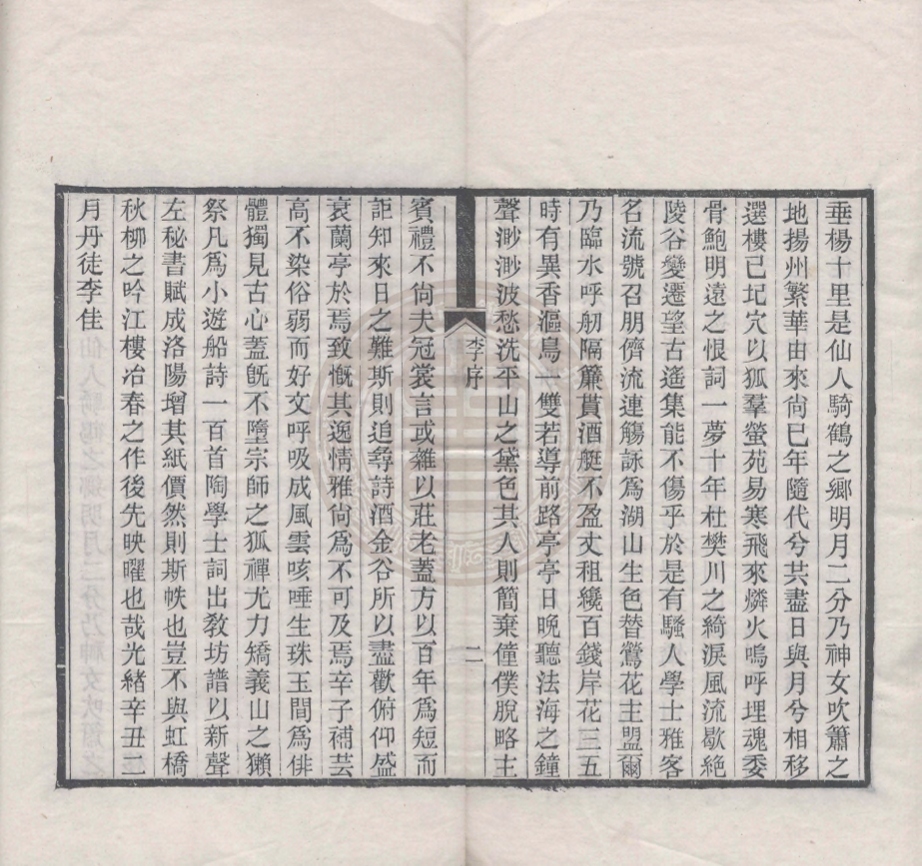 垂楊十里是仙人騎鶴之鄉明月二分乃神女吹簫之
地揚州繁華由來尙已年隨代兮共盡日與月兮相移
選樓已圮穴以狐羣螢苑易寒飛來燐火嗚呼埋魂委
骨鮑明遠之恨詞一夢十年杜樊川之綺淚風流歇絶
陵谷變遷望古遙集能不傷乎於是有騷人學士雅客
名流號召朋儕流連觴詠爲湖山生色替鶯花主盟爾
乃臨水呼舠隔簾貰酒艇不盈丈租纔百錢岸花三五
時有異香漚鳥一雙若導前路亭亭日晚聽法海之鐘
聲渺渺波愁洗平山之黛色其人則簡棄僮僕脫略主
李序
二
賓禮不尙夫冠裳言或雜以莊老蓋方以百年爲短而
詎知來日之難斯則追尋詩酒金谷所以盡歡俯仰盛
衰蘭亭於焉致慨其逸情雅尙爲不可及焉辛子補芸
高不染俗弱而好文呼吸成風雲咳唾生珠玉間爲俳
體獨見古心蓋旣不墮宗師之狐禪尤力矯義山之獺
祭凡爲小遊船詩一百首陶學士詞出敎坊譜以新聲
左秘書賦成洛陽增其紙價然則斯帙也豈不與虹橋
秋柳之吟江樓冶春之作後先映曜也哉光緒辛丑二
月丹徒李佳